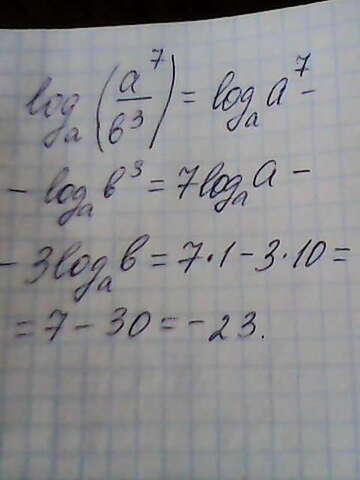 logₐ(a⁷/b³) = logₐa⁷ -
- logₐb³ = 7logₐa -
- 3logₐb = 7·1 - 3·10 =
= 7 - 30 = -23.